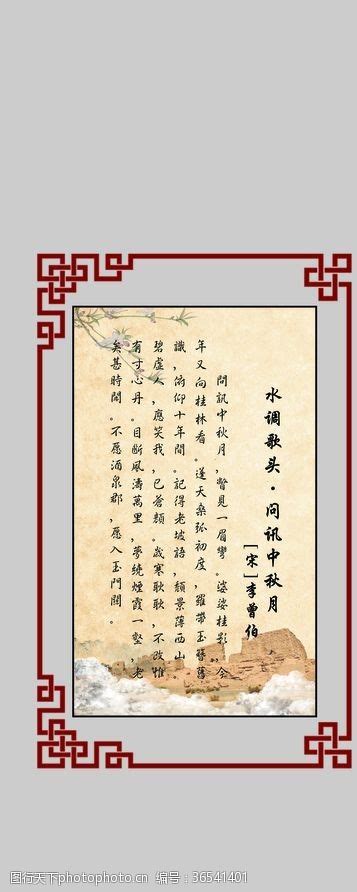 水调歌头·问讯中秋月
[宋]李曾伯
問訊中秋月，暫見一眉彎。婆娑桂影，今
年又向桂林看。蓬矢桑弧初度，羅帶玉簪舊
識，俯仰十年間。記得老坡語，頹景薄西山。
碧虛人，應笑我，已蒼顏。歲寒耿耿，不改惟
有寸心丹。目斷風濤萬里，夢繞煙霞一壑，老
矣甚時閒。不愿酒泉郡，愿入玉門關。
图行天下photophoto.cn 编号：36541401